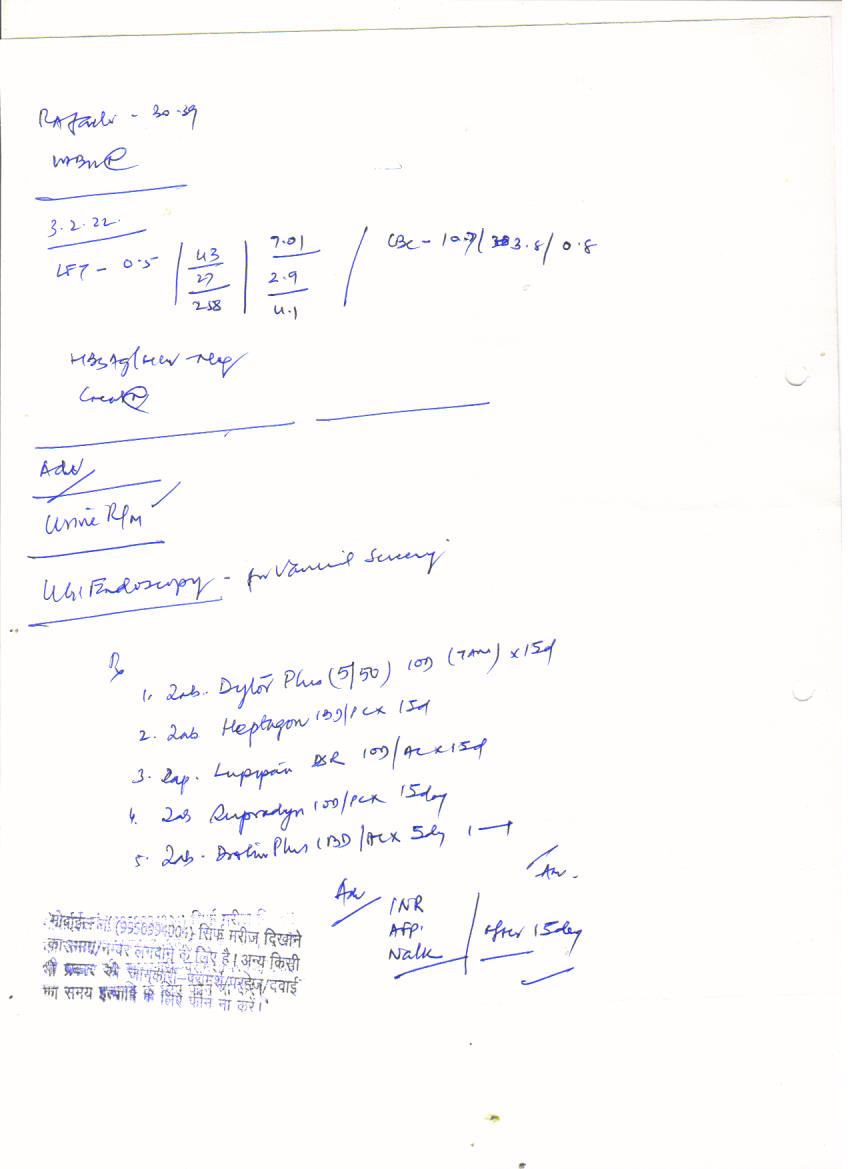 RA factor - 30.39
3.2.22.
LFT - 0.5 | 43 / 27 / 258 | 7.01 / 2.9 / 4.1 / CBC - 10.7 / 3.8 / 0.8
HBsAg / HCV -neg
Creat N
Adv
Urine R/M
UGI Endoscopy - for Variceal Screening
Rx
1. Tab. Dytor Plus (5/50) 1OD (7AM) x 15d
2. Tab Heptagon 1BD/PC x 15d
3. Cap. Lupipan DSR 1OD/AC x 15d
4. Tab Supradyn 1OD/PC x 15day
5. Tab. Plus 1BD/AC x 5day
Adv
INR
AFP.
Na/K
after 15day
मोबाईल नं. (9556994004) सिर्फ मरीज दिखाने
का समय/नम्बर लगवाने के लिए है। अन्य किसी
भी प्रकार की जानकारी-परामर्श/परहेज/दवाई
का समय इत्यादि के लिए फोन ना करें।